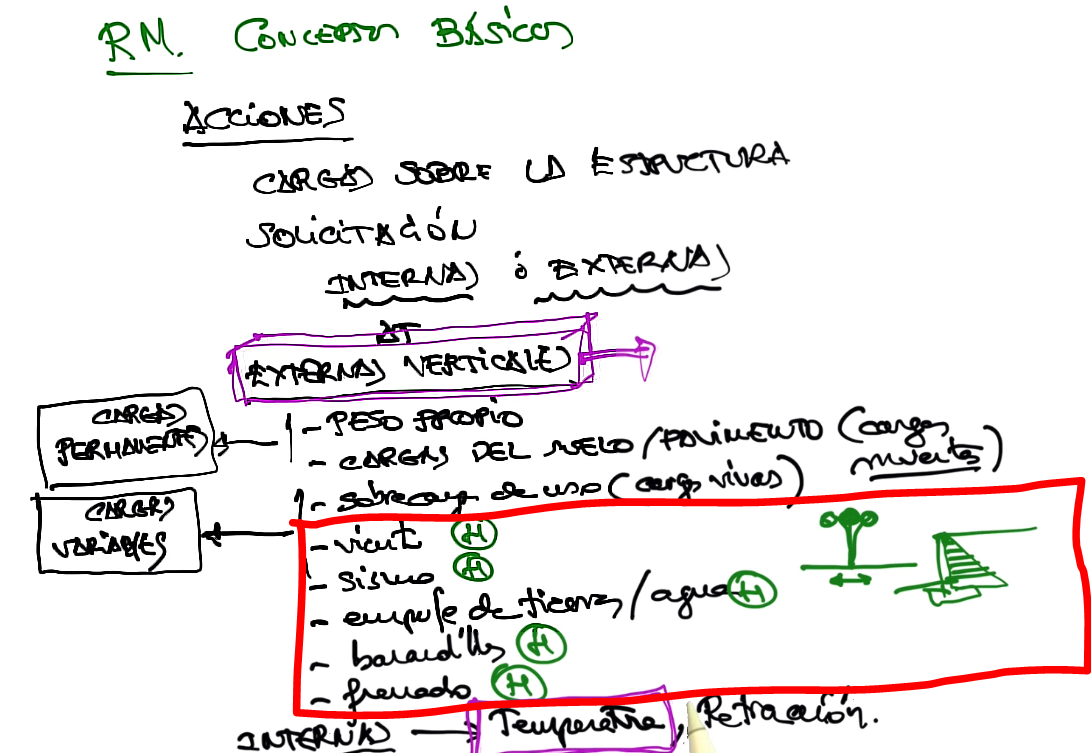 RM. CONCEPTOS BÁSICOS
ACCIONES
CARGAS SOBRE LA ESTRUCTURA
SOLICITACIÓN
INTERNAS ó EXTERNAS
ΔT
EXTERNAS VERTICALES
CARGAS PERMANENTES
- PESO PROPIO
- CARGAS DEL SUELO / PAVIMENTO (cargas muertas)
- sobrecarga de uso (cargas vivas)
CARGAS VARIABLES
- viento H
- sismo H
- empuje de tierras / agua H
- barandillas H
- frenado H
INTERNAS → Temperatura, Retracción.